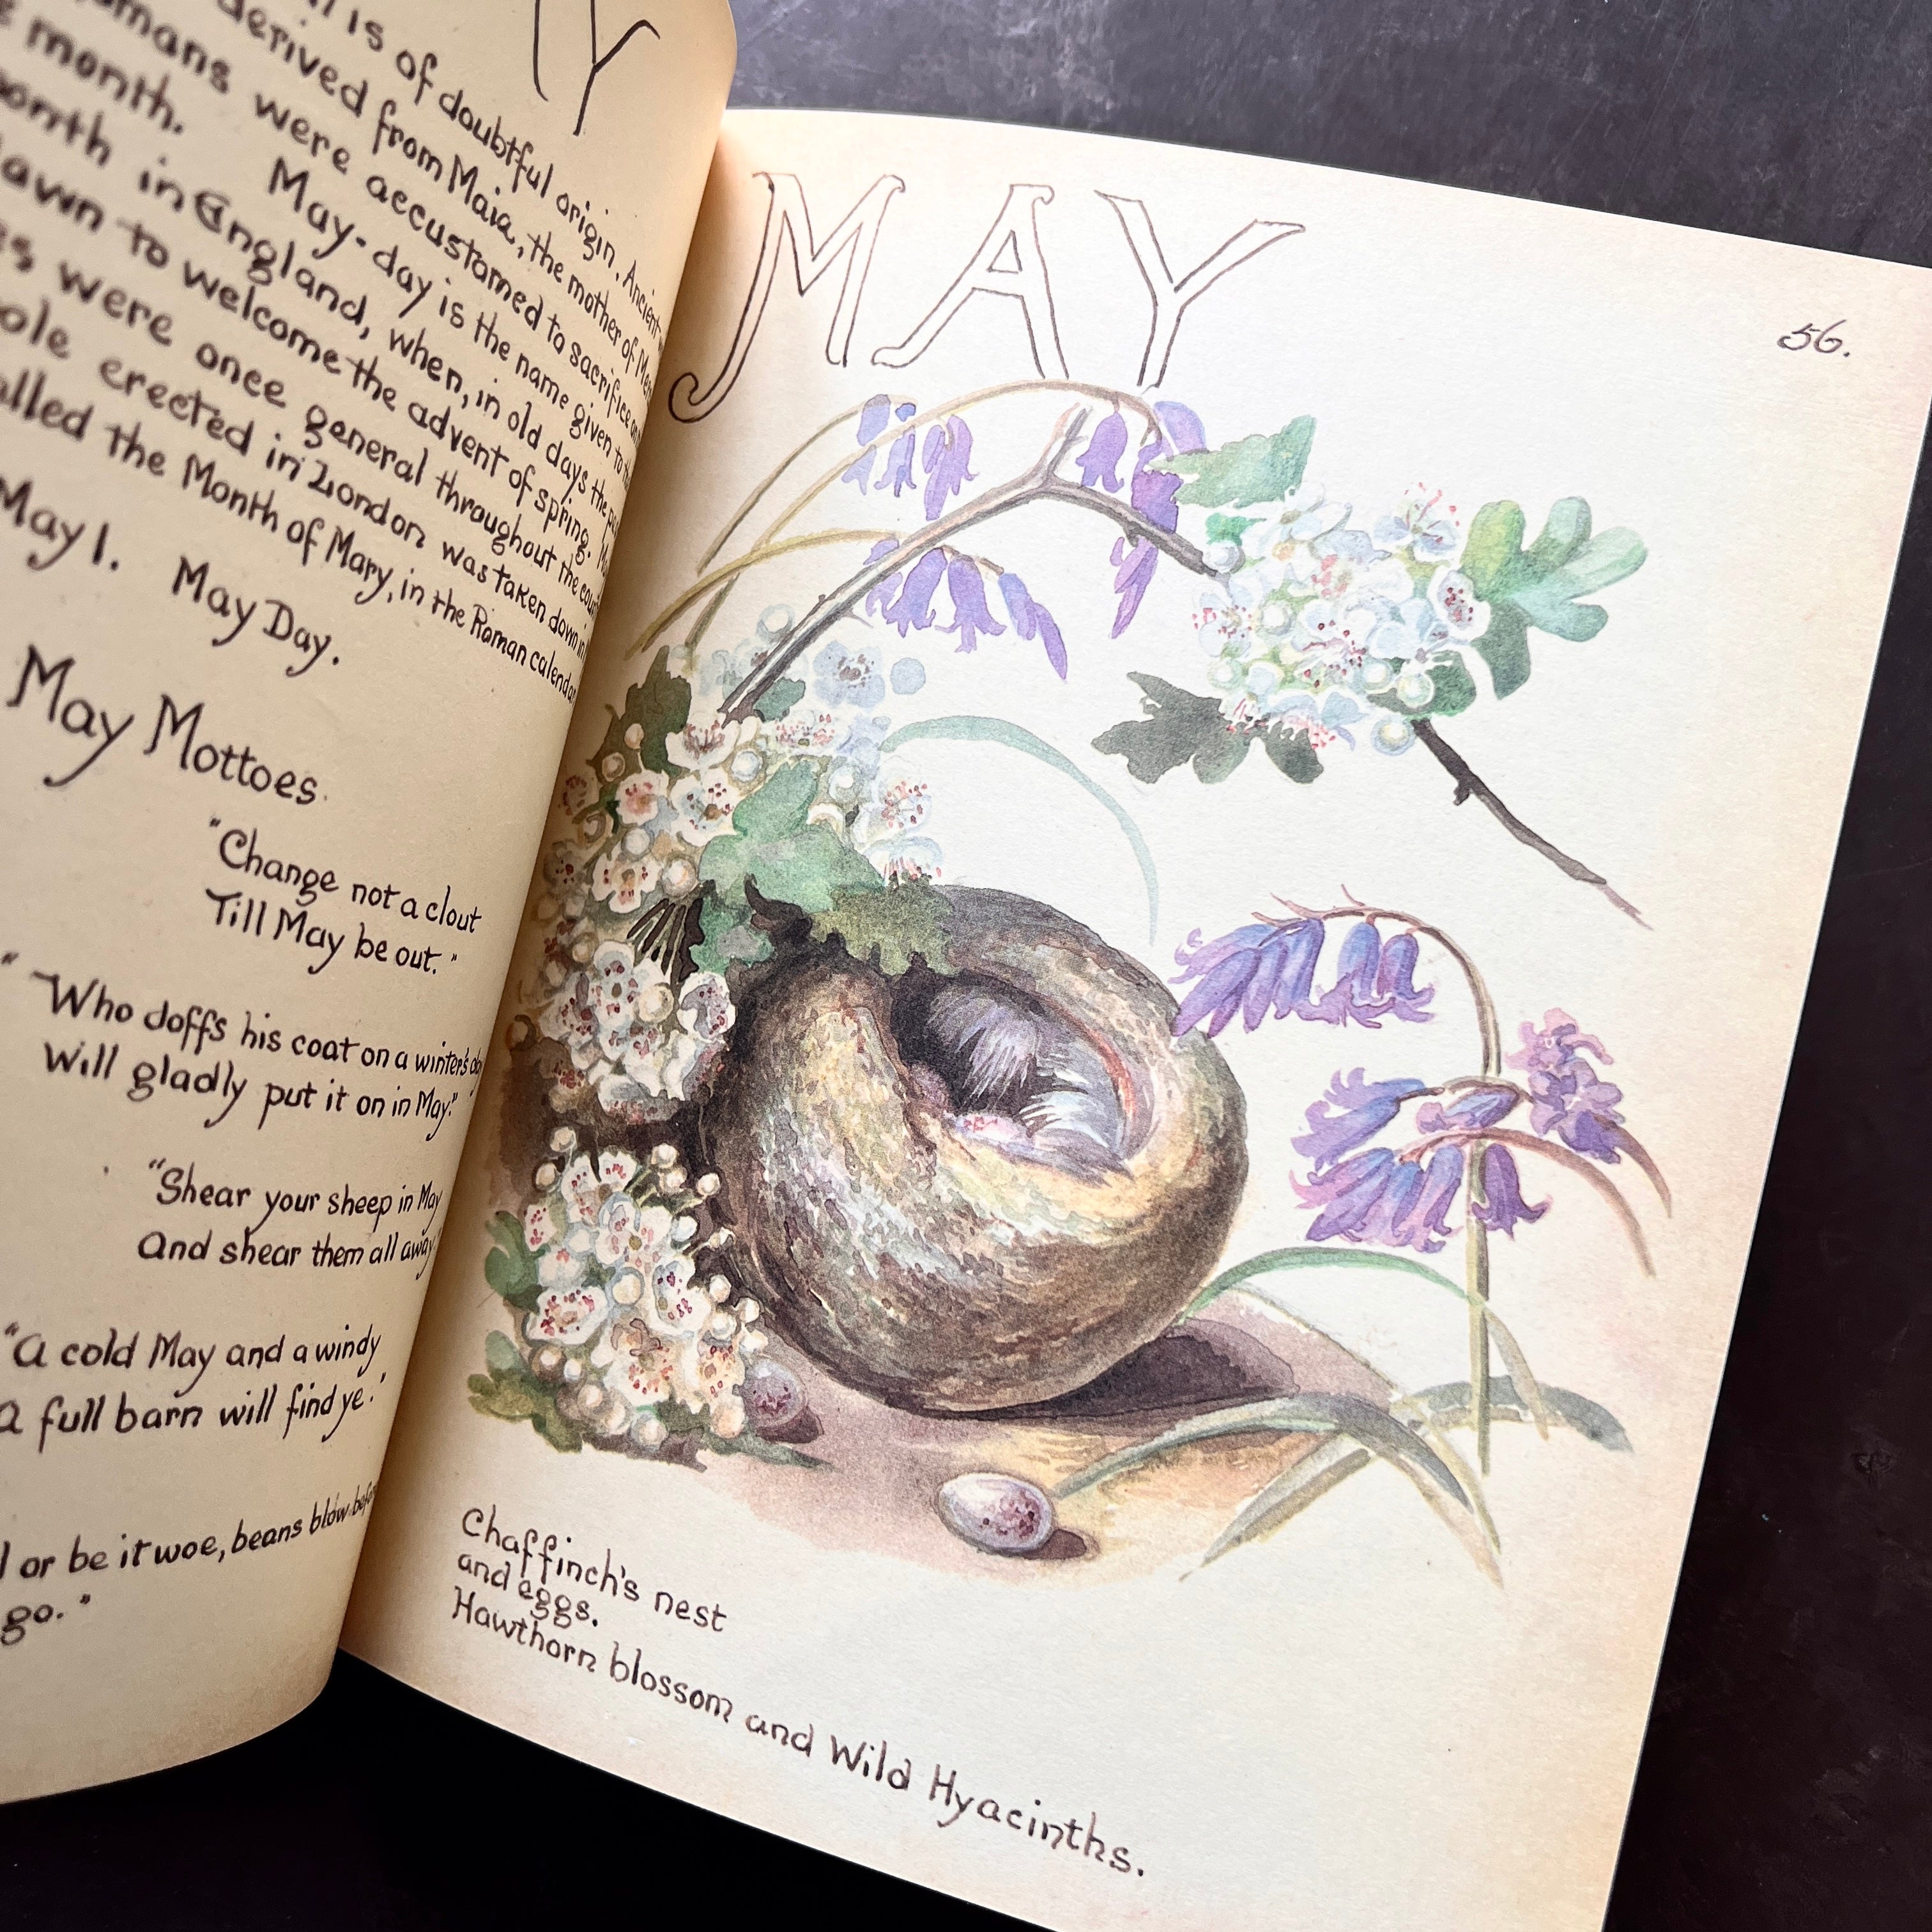 Y
is of doubtful origin. Ancient
derived from Maia, the mother of
were accustomed to sacrifice on
month. May-day is the name given to
in England, when, in old days the
to welcome the advent of spring.
were once general throughout the
erected in London was taken down in
the Month of Mary, in the Roman calendar
May 1. May Day.
May Mottoes.
"Change not a clout
Till May be out."
"Who doffs his coat on a winter's
Will gladly put it on in May."
"Shear your sheep in May
And shear them all away."
"A cold May and a windy
A full barn will find ye."
or be it woe, beans blow
go."
MAY
56.
Chaffinch's nest
and eggs.
Hawthorn blossom and Wild Hyacinths.